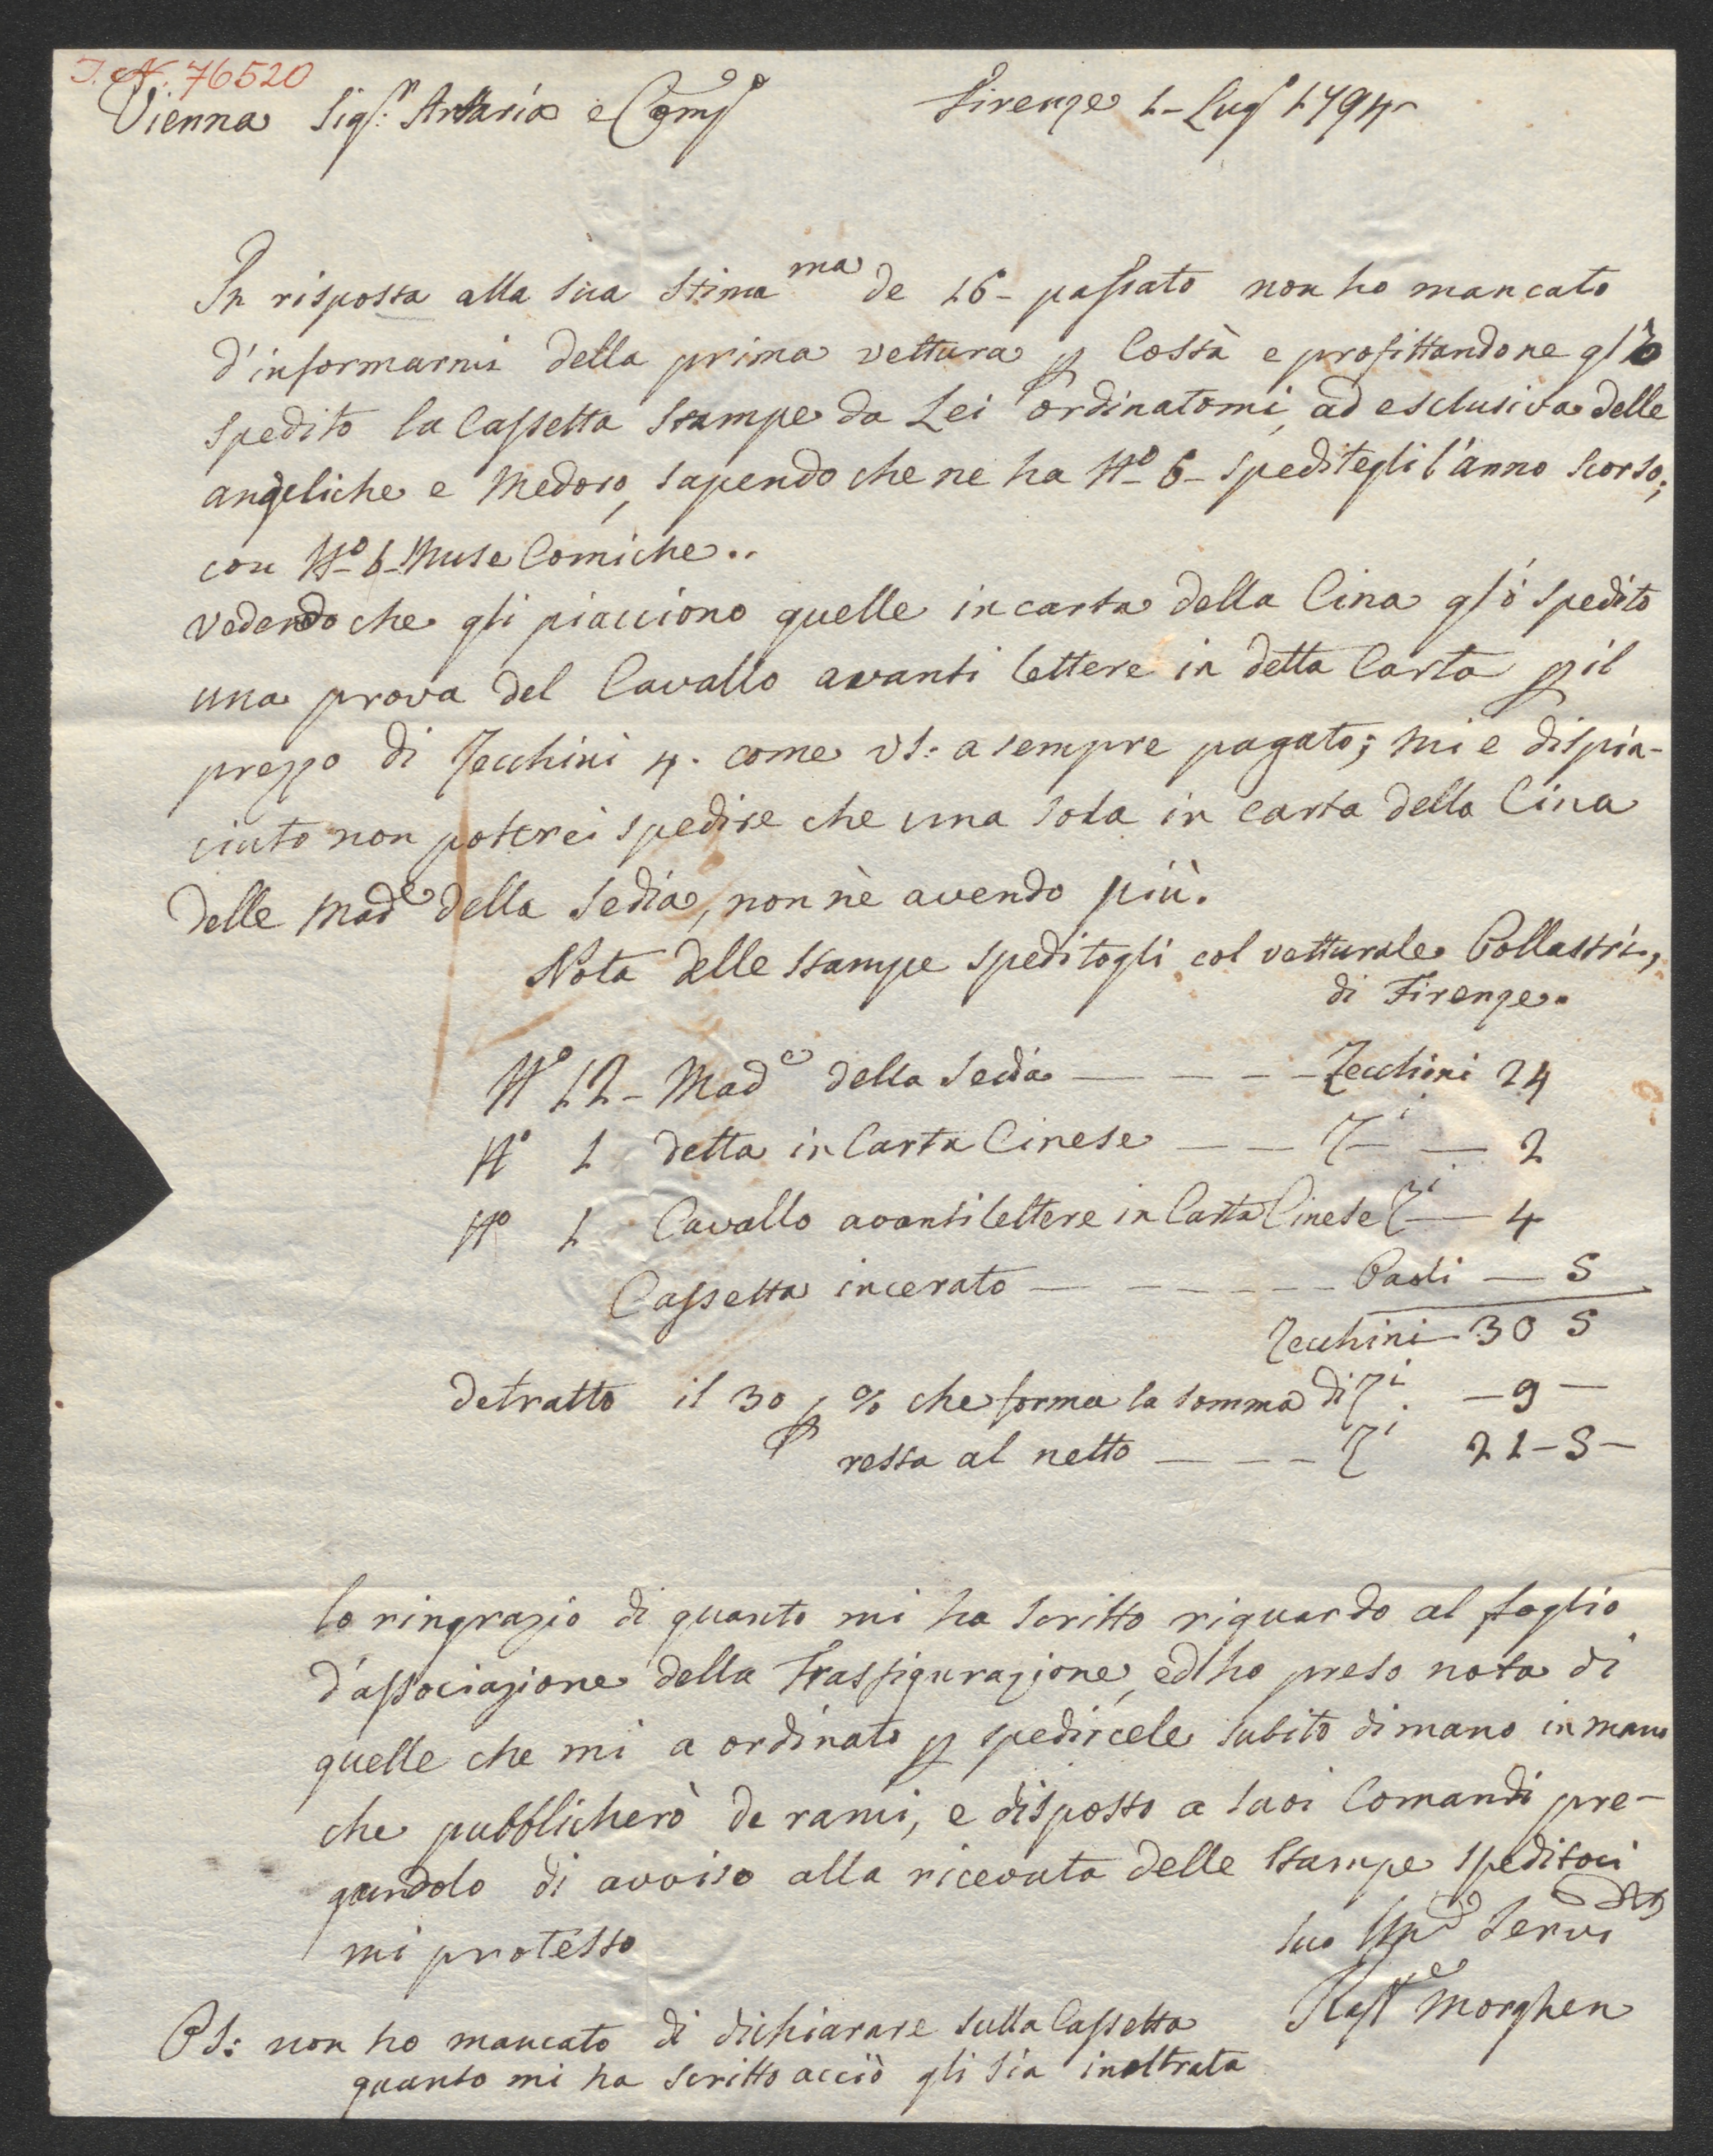 I. N. 76520
Vienna Sigri: Artaria e Compo Firenze 1- Lugo 1794
In risposta alla sua Stimama de 16- passato non ho mancato
d'informarmi della prima vettura p Costà e profittandone gl'ò
spedito la Cassetta Stampe da Lei ordinatomi, ad esclusiva delle
angeliche e Medoro, sapendo che ne ha No 6- speditegli l'anno scorso;
con No 6- Muse Comiche..
vedendo che gli piacciono quelle in carta della Cina gl'ò spedito
una prova del Cavallo avanti lettere in detta Carta p il
prezzo di Zecchini 4. come VS: a sempre pagato; mi e dispia-
ciuto non poterci spedire che una sola in carta della Cina
delle Made della Sedia, non nè avendo più.
Nota delle Stampe speditogli col vetturale Pollastri,
di Firenze.
No 12- Made della Sedia — — — — Zecchini 24
No 1 detta in Carta Cinese — — Zi — 2
No 1 Cavallo avanti lettere in Carta Cinese Zi — 4
Cassetta incerato — — — — — — Paoli — 5
Zecchini 30 5
detratto il 30 p % che forma la somma di Zi. — 9 —
resta al netto — — — Zi 21 - 5 -
lo ringrazio di quanto mi ha scritto riguardo al foglio
d'associazione della Trasfigurazione, ed ho preso nota di
quelle che mi a ordinato p spedircele subito di mano in mano
che pubblicherò de rami, e disposto a suoi Comandi pre-
gandolo di avviso alla ricevuta delle Stampe speditoci
mi protesto
Suo Servi
Raffe Morghen
PS: non ho mancato di dichiarare sulla Cassetta
quanto mi ha scritto acciò gli sia inoltrata